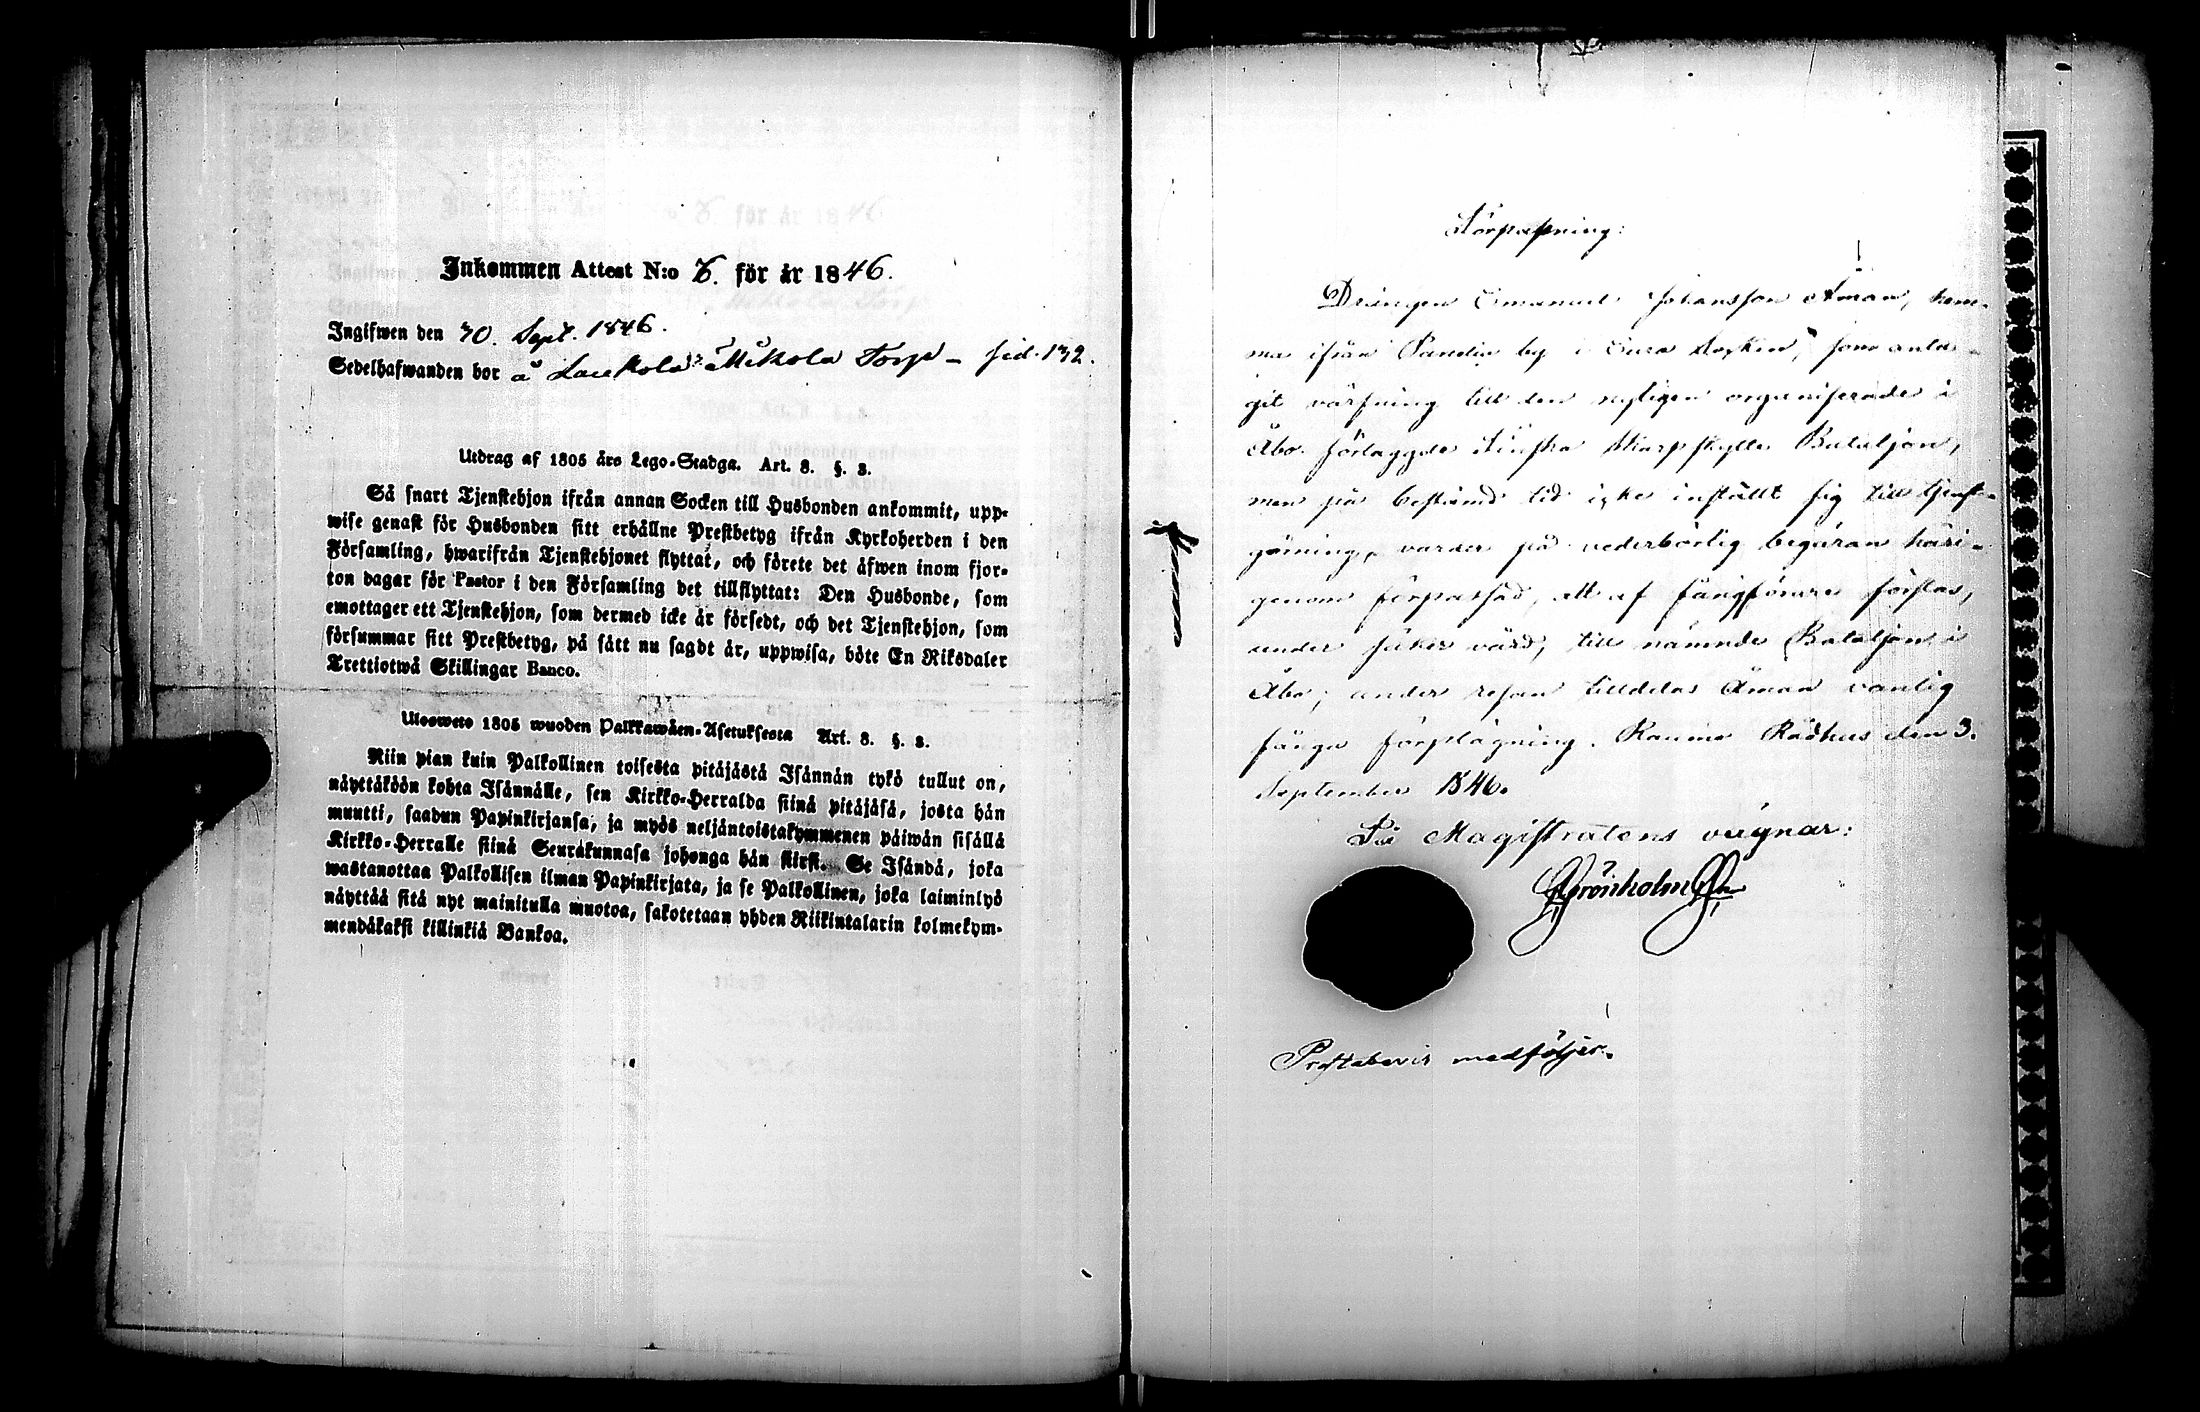 Inkommen Attest N:o 8. för år 1846.
Ingifwen den 30. Sept. 1846.
Sedelhafwanden bor å Laukola Mikola Torp – sid. 132.
Utdrag af 1805 års Lego-Stadga. Art. 3. §. 3.
Så snart Tjenstehjon ifrån annan Socken till Husbonden ankommit, upp-
wise genast för Husbonden sitt erhållne Prestbetyg ifrån Kyrkoherden i den
Församling, hwarifrån Tjenstehjonet flyttat, och förete det åfwen inom fjor-
ton dagar för Pastor i den Församling det tillflyttat: Den Husbonde, som
emottager ett Tjenstehjon, som dermed icke år försedt, och det Tjenstehjon, som
försummar sitt Prestbetyg, på sått nu sagdt år, uppwisa, böte En Riksdaler
Trettiotwå Skillingar Banco.
Ulosweto 1805 wuoden Palkkawåen-Asetuksesta Art. 3. §. 3.
Niin pian kuin Palkollinen toisesta pitåjåstå Isånnån tykö tullut on,
nåyttåköön kohta Isånnålle, sen Kirkko-Herralda siinå pitåjåså, josta hån
muutti, saadun Papinkirjansa, ja myös neljåntoistakymmenen påiwån sisållå
Kirkko-Herralle siinå Seuråkunnasa johonga hån siirsi. Se Isåndå, joka
wastanottaa Palkollisen ilman Papinkirjata, ja se Palkollinen, joka laiminlyö
nåyttåå sitå nyt mainitulla muotoa, sakotetaan yhden Riikintalarin kolmekym-
mendåkaksi killinkiå Bankoa.
Förpassning:
Drängen Emanuel Johansson Åman, hem-
ma ifrån Pandin by i Eura Socken, som anta-
git värfning till den nyligen organiserade i
Åbo förlaggde Finska Skarpskytte Bataljon,
men på bestämd tid icke inställt sig till tjenst-
göring, varder på vederbörlig begäran häri-
genom förpassad, att af fångförare förslas,
under säker vård, till nämnde Bataljon i
Åbo; under resan tilldelas Åman vanlig
fånge förplägning. Raumo Rådhus den 3.
September 1846.
På Magistratens vägnar:
Grönholm
Prestabevis medföljer.